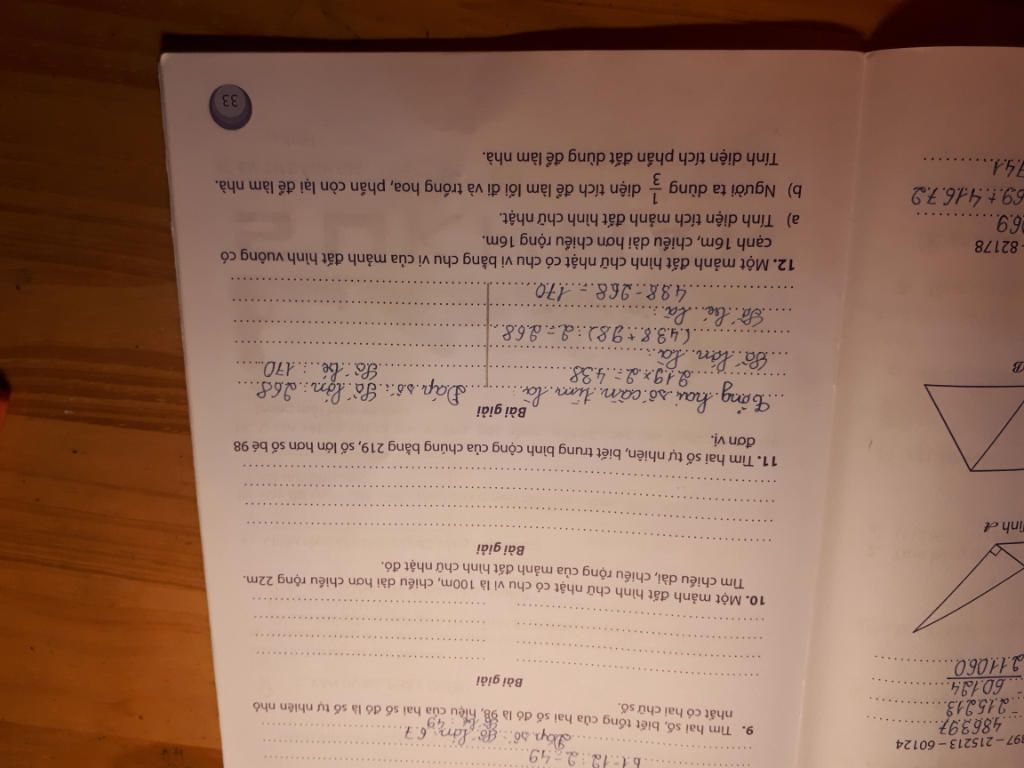 61 - 12 : 2 = 49
Đáp số : Số lớn : 67
Số bé : 49
9. Tìm hai số, biết tổng của hai số đó là 98, hiệu của hai số đó là số tự nhiên nhỏ
nhất có hai chữ số.
Bài giải
10. Một mảnh đất hình chữ nhật có chu vi là 100m, chiều dài hơn chiều rộng 22m.
Tìm chiều dài, chiều rộng của mảnh đất hình chữ nhật đó.
Bài giải
11. Tìm hai số tự nhiên, biết trung bình cộng của chúng bằng 219, số lớn hơn số bé 98
đơn vị.
Bài giải
Tổng hai số cần tìm là :
219 x 2 = 438
Số lớn là :
(438 + 98) : 2 = 268
Số bé là :
438 - 268 = 170
Đáp số : Số lớn : 268
Số bé : 170
12. Một mảnh đất hình chữ nhật có chu vi bằng chu vi của mảnh đất hình vuông có
cạnh 16m, chiều dài hơn chiều rộng 16m.
a) Tính diện tích mảnh đất hình chữ nhật.
b) Người ta dùng 1/3 diện tích để làm lối đi và trồng hoa, phần còn lại để làm nhà.
Tính diện tích phần đất dùng để làm nhà.
33
397 – 215213 – 60124
486397
- 215213
60124
211060
B
- 82178
069
69 + 41672
741